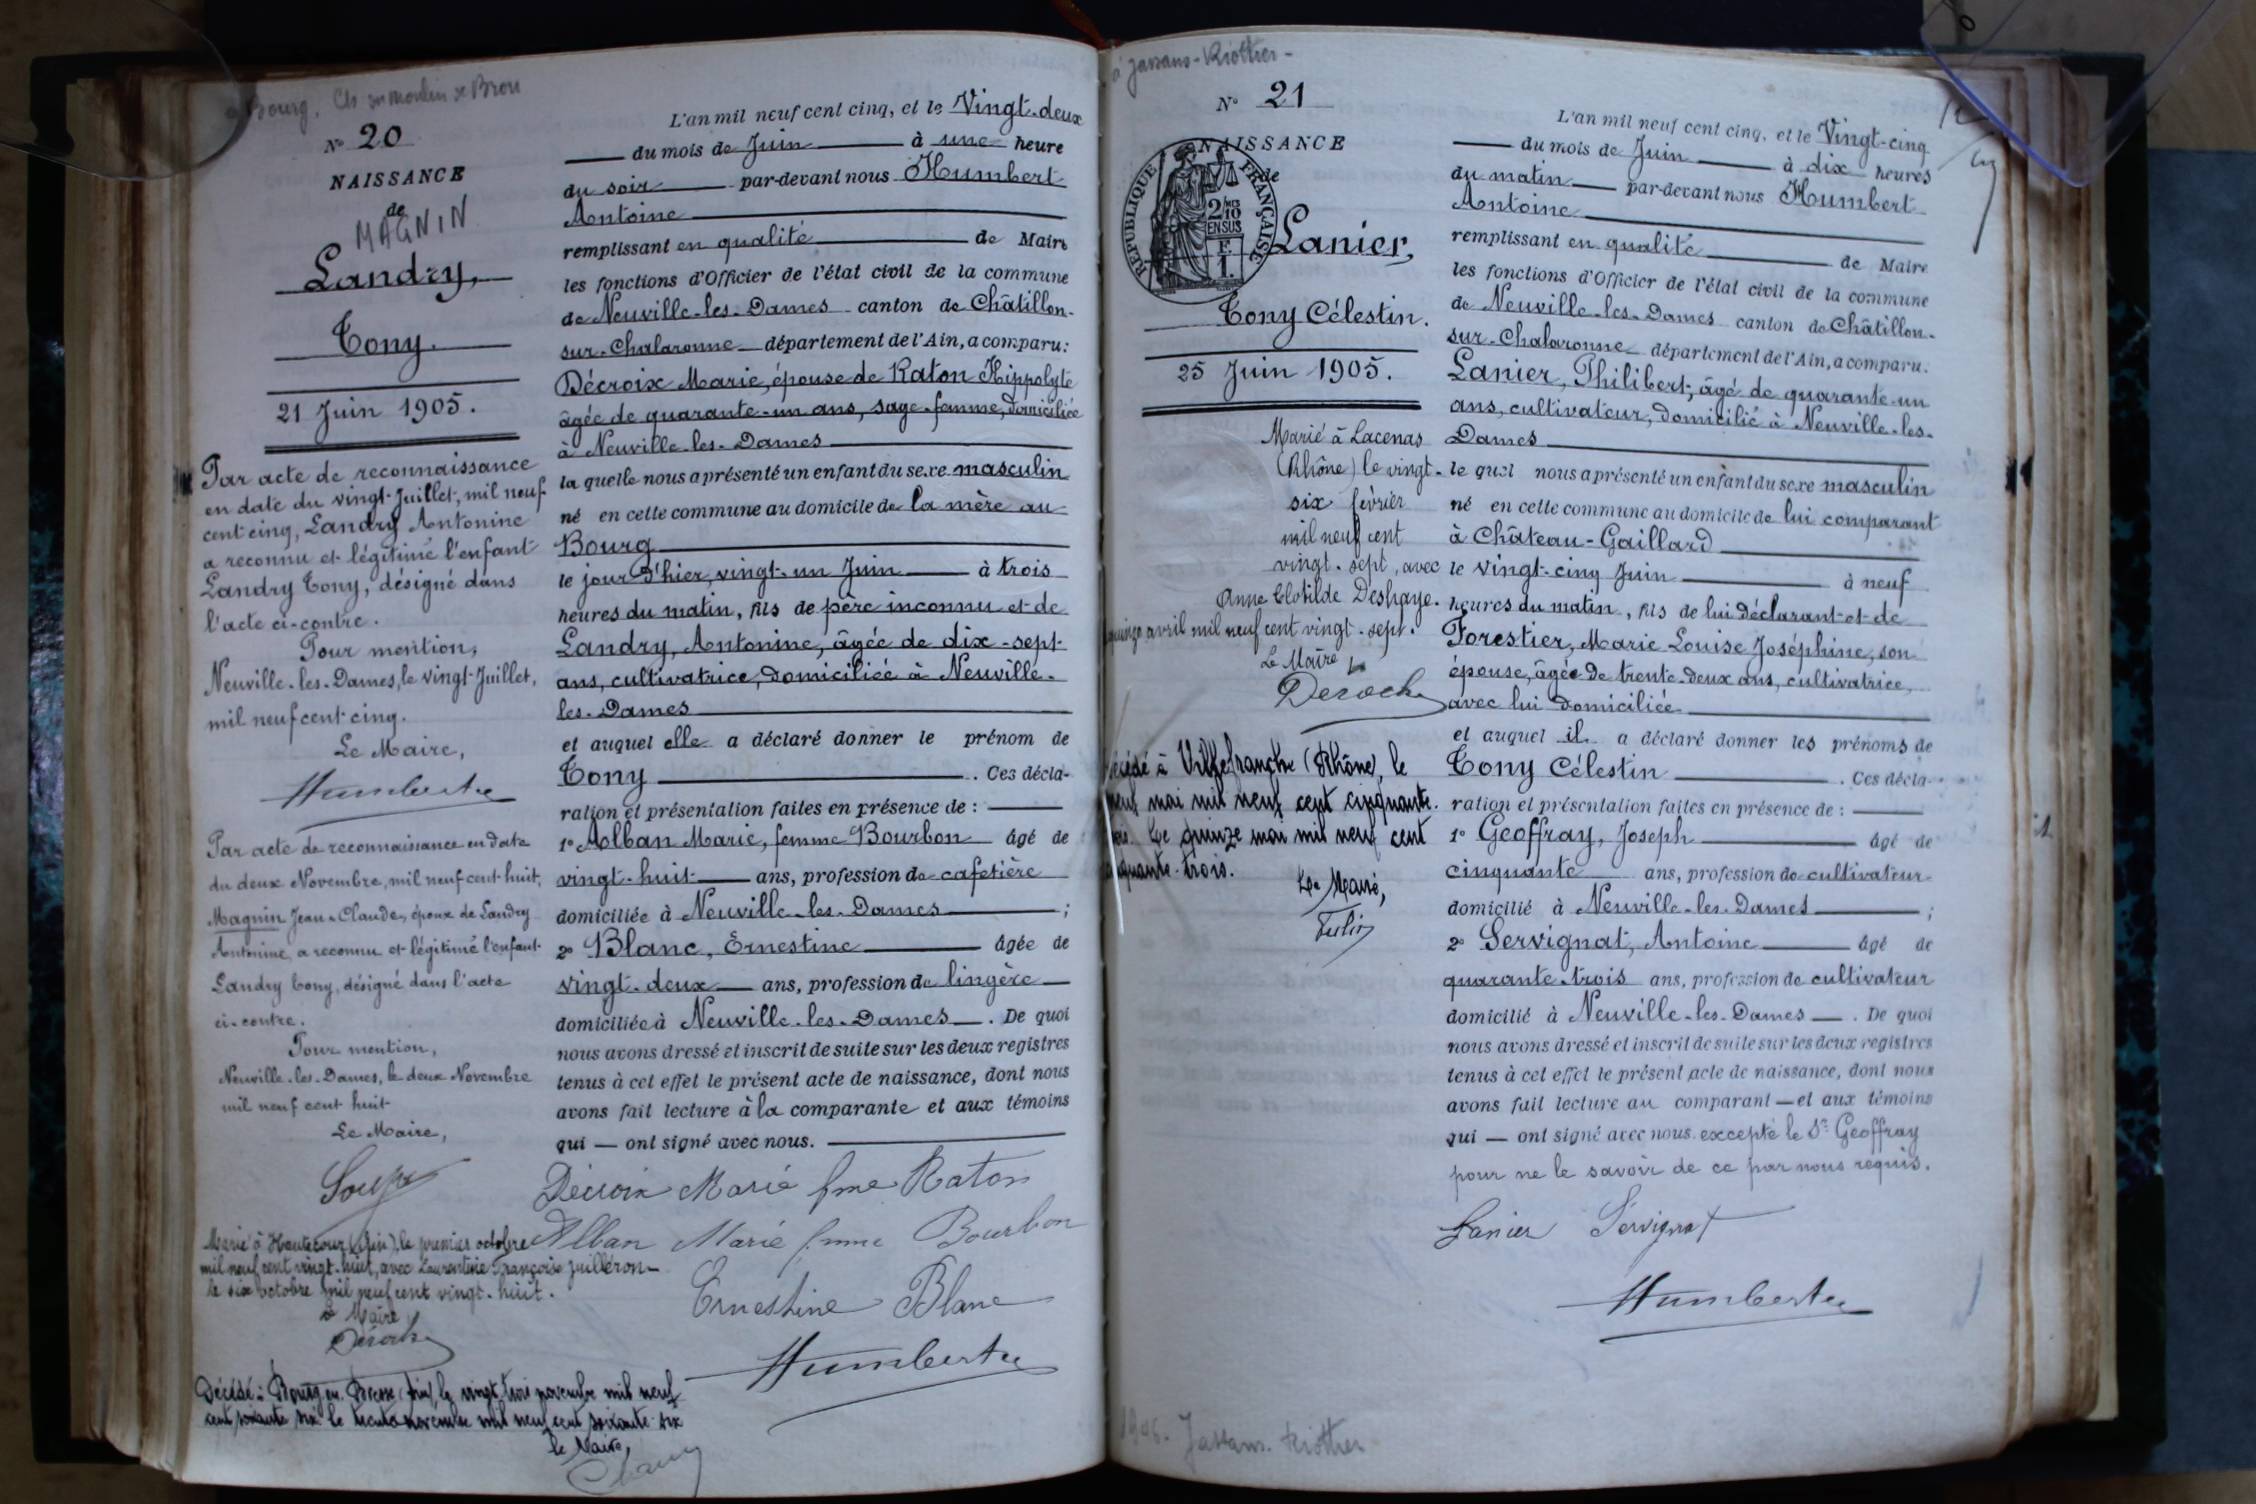 Bourg, Ch du moulin de Brou
N° 20
NAISSANCE
de
MAGNIN
Landry,
Tony.
21 Juin 1905.
Par acte de reconnaissance
en date du vingt Juillet, mil neuf
cent cinq, Landry Antonine
a reconnu et légitimé l'enfant
Landry Tony, désigné dans
l'acte ci-contre.
Pour mention,
Neuville-les-Dames, le vingt Juillet,
mil neuf cent cinq.
Le Maire,
Humbert
Par acte de reconnaissance en date
du deux Novembre, mil neuf cent huit,
Magnin Jean-Claude, époux de Landry
Antonine, a reconnu et légitimé l'enfant
Landry Tony, désigné dans l'acte
ci-contre.
Pour mention,
Neuville-les-Dames, le deux Novembre
mil neuf cent huit
Le Maire,
Marié à Hautecour (Ain), le premier octobre
mil neuf cent vingt-huit, avec Laurentine Françoise Juilléron
le six octobre mil neuf cent vingt-huit.
Le Maire
Deroche
Décédé à Bourg en Bresse (Ain) le vingt trois novembre mil neuf
cent soixante six le trente novembre mil neuf cent soixante-six
le Maire,
L'an mil neuf cent cinq, et le Vingt-deux
du mois de Juin à une heure
du soir par-devant nous Humbert
Antoine
remplissant en qualité de Maire
les fonctions d'Officier de l'état civil de la commune
de Neuville-les-Dames canton de Châtillon-
sur-Chalaronne département de l'Ain, a comparu:
Décroix Marie, épouse de Raton Hippolyte
âgée de quarante-un ans, sage-femme, domiciliée
à Neuville-les-Dames
la quelle nous a présenté un enfant du sexe masculin
né en cette commune au domicile de la mère au
Bourg
le jour d'hier, vingt-un Juin à trois
heures du matin, fils de père inconnu et de
Landry, Antonine, âgée de dix-sept
ans, cultivatrice, domiciliée à Neuville-
les-Dames
et auquel elle a déclaré donner le prénom de
Tony . Ces décla-
ration et présentation faites en présence de :
1° Alban Marie, femme Bourbon âgé de
vingt-huit ans, profession de cafetière
domiciliée à Neuville-les-Dames ;
2° Blanc, Ernestine âgée de
vingt-deux ans, profession de lingère
domiciliée à Neuville-les-Dames . De quoi
nous avons dressé et inscrit de suite sur les deux registres
tenus à cet effet le présent acte de naissance, dont nous
avons fait lecture à la comparante et aux témoins
qui — ont signé avec nous.
Décroix Marie fme Raton
Alban Marie femme Bourbon
Ernestine Blanc
Humbert
à Jassans-Riottier-
N° 21
NAISSANCE
de
RÉPUBLIQUE FRANÇAISE
2/10
EN SUS
F.
1.
Lanier,
Tony Célestin.
25 Juin 1905.
Marié à Lacenas
(Rhône) le vingt-
six février
mil neuf cent
vingt-sept, avec
Anne Clotilde Deshaye.
quinze avril mil neuf cent vingt-sept.
Le Maire,
Deroche
Décédé à Villefranche (Rhône), le
neuf mai mil neuf cent cinquante-
trois. Le quinze mai mil neuf cent
cinquante-trois.
Le Maire,
L'an mil neuf cent cinq, et le Vingt-cinq
du mois de Juin à dix heures
du matin par-devant nous Humbert
Antoine
remplissant en qualité de Maire
les fonctions d'Officier de l'état civil de la commune
de Neuville-les-Dames canton de Châtillon-
sur-Chalaronne département de l'Ain, a comparu:
Lanier, Philibert, âgé de quarante-un
ans, cultivateur, domicilié à Neuville-les-
Dames
le quel nous a présenté un enfant du sexe masculin
né en cette commune au domicile de lui comparant
à Château-Gaillard
le vingt-cinq Juin à neuf
heures du matin, fils de lui déclarant et de
Forestier, Marie Louise Joséphine, son
épouse, âgée de trente-deux ans, cultivatrice,
avec lui domiciliée
et auquel il a déclaré donner les prénoms de
Tony Célestin . Ces décla-
ration et présentation faites en présence de :
1° Geoffray, Joseph âgé de
cinquante ans, profession de cultivateur
domicilié à Neuville-les-Dames ;
2° Servignat, Antoine âgé de
quarante-trois ans, profession de cultivateur
domicilié à Neuville-les-Dames . De quoi
nous avons dressé et inscrit de suite sur les deux registres
tenus à cet effet le présent acte de naissance, dont nous
avons fait lecture au comparant — et aux témoins
qui — ont signé avec nous. excepté le Sr Geoffray
pour ne le savoir de ce par nous requis.
Lanier Servignat
Humbert
Jassans Riottier